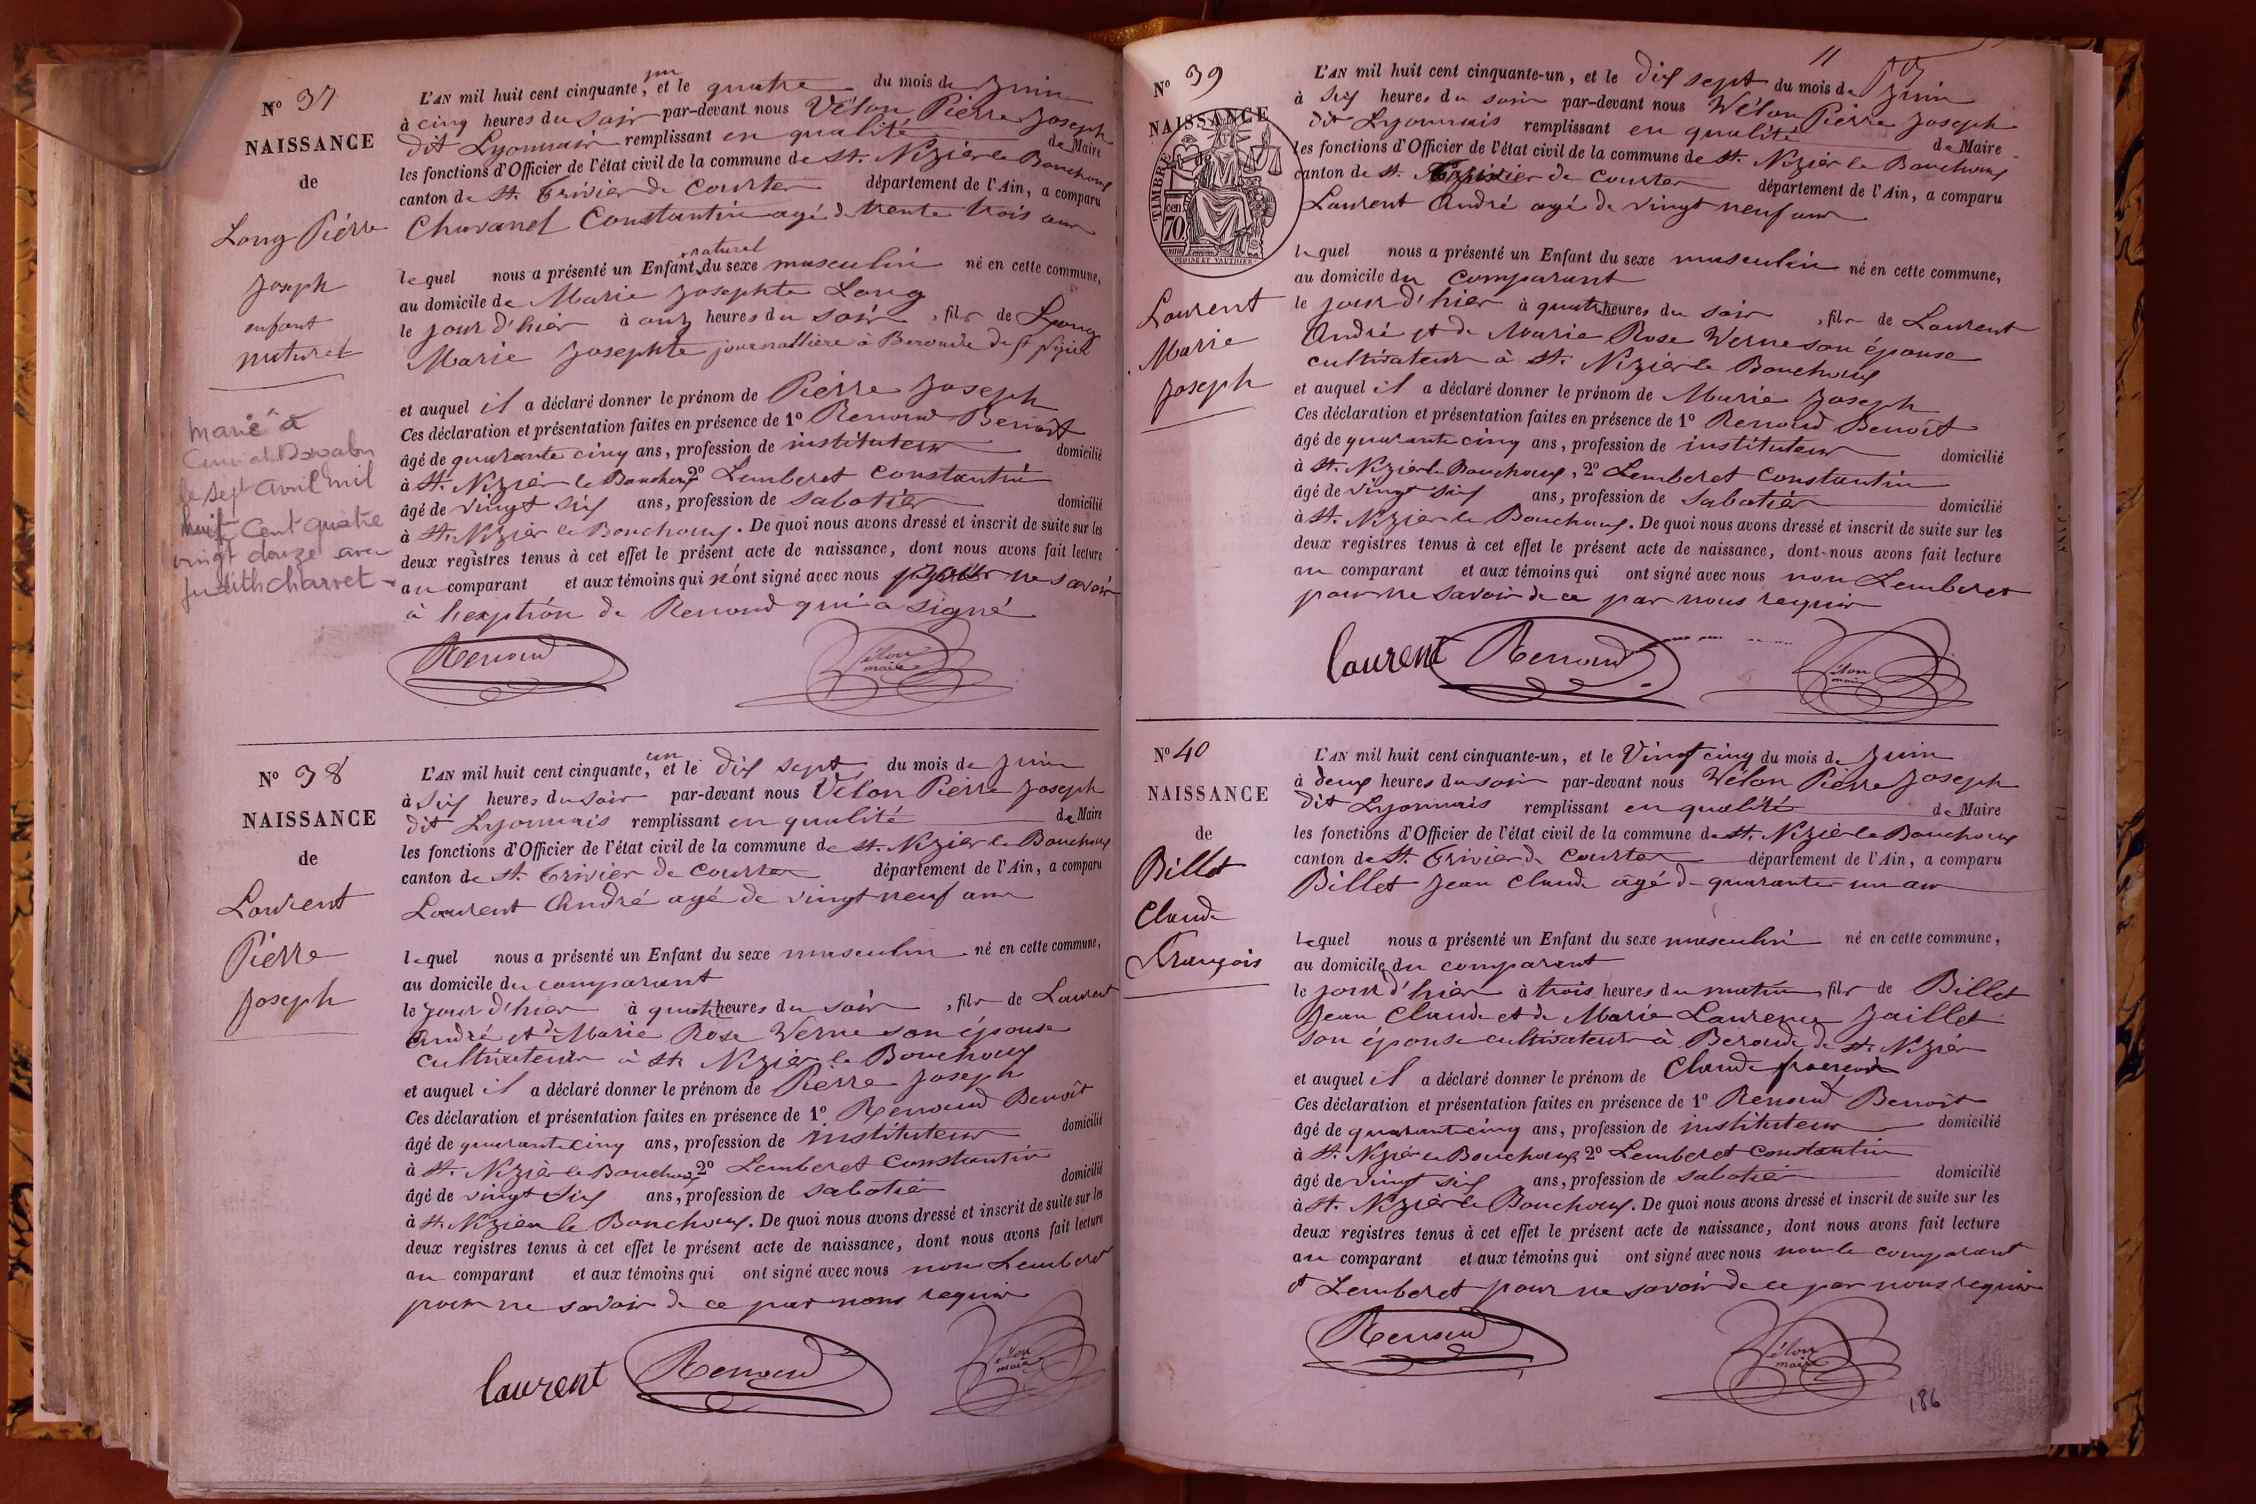 N° 37
NAISSANCE
de
Long Pierre
Joseph
enfant
naturel
marié à
le sept avril mil
huit cent quatre
vingt douze avec
Judith Charret
L'AN mil huit cent cinquante, un et le quatre du mois de Juin
à cinq heures du soir par-devant nous Vélon Pierre Joseph
dit Lyonnais remplissant en qualité de Maire
les fonctions d'Officier de l'état civil de la commune de St. Nizier le Bouchoux
canton de St. Trivier de Courtes département de l'Ain, a comparu
Chavanel Constantin agé de trente trois ans
lequel nous a présenté un Enfant naturel du sexe masculin né en cette commune,
au domicile de Marie Josephte Long
le jour d'hier à onze heures du soir, fils de Long
Marie Josephte journallière à Beroude de St Nizier
et auquel il a déclaré donner le prénom de Pierre Joseph
Ces déclaration et présentation faites en présence de 1° Renoud Benoît
âgé de quarante cinq ans, profession de instituteur domicilié
à St. Nizier le Bouchoux 2° Lemberet Constantin
âgé de vingt six ans, profession de sabotier domicilié
à St. Nizier le Bouchoux. De quoi nous avons dressé et inscrit de suite sur les
deux registres tenus à cet effet le présent acte de naissance, dont nous avons fait lecture
au comparant et aux témoins qui n'ont signé avec nous ne savoir
à l'exeption de Renoud qui a signé
Renoud
Vélon
maire
N° 38
NAISSANCE
de
Laurent
Pierre
Joseph
L'AN mil huit cent cinquante, un et le dix sept du mois de Juin
à six heures du soir par-devant nous Vélon Pierre Joseph
dit Lyonnais remplissant en qualité de Maire
les fonctions d'Officier de l'état civil de la commune de St. Nizier le Bouchoux
canton de St. Trivier de Courtes département de l'Ain, a comparu
Laurent André agé de vingt neuf ans
lequel nous a présenté un Enfant du sexe masculin né en cette commune,
au domicile du comparant
le jour d'hier à quatre heures du soir, fils de Laurent
André et de Marie Rose Werne son épouse
cultivateur à St. Nizier le Bouchoux
et auquel il a déclaré donner le prénom de Pierre Joseph
Ces déclaration et présentation faites en présence de 1° Renoud Benoît
âgé de quarante cinq ans, profession de instituteur domicilié
à St. Nizier le Bouchoux 2° Lemberet Constantin
âgé de vingt six ans, profession de sabotier domicilié
à St. Nizier le Bouchoux. De quoi nous avons dressé et inscrit de suite sur les
deux registres tenus à cet effet le présent acte de naissance, dont nous avons fait lecture
au comparant et aux témoins qui ont signé avec nous non Lemberet
pour ne savoir de ce par nous requis
laurent Renoud
Vélon
maire
11
N° 39
NAISSANCE
TIMBRE
70
Laurent
Marie
Joseph
L'AN mil huit cent cinquante-un, et le dix sept du mois de Juin
à six heures du soir par-devant nous Wélon Pierre Joseph
dit Lyonnais remplissant en qualité de Maire
les fonctions d'Officier de l'état civil de la commune de St. Nizier le Bouchoux
canton de St. Trivier de Courtes département de l'Ain, a comparu
Laurent André agé de vingt neuf ans
lequel nous a présenté un Enfant du sexe masculin né en cette commune,
au domicile du comparant
le jour d'hier à quatre heures du soir, fils de Laurent
André et de Marie Rose Werne son épouse
cultivateur à St. Nizier le Bouchoux
et auquel il a déclaré donner le prénom de Marie Joseph
Ces déclaration et présentation faites en présence de 1° Renoud Benoît
âgé de quarante cinq ans, profession de instituteur domicilié
à St. Nizier le Bouchoux, 2° Lemberet Constantin
âgé de vingt six ans, profession de Sabotier domicilié
à St. Nizier le Bouchoux. De quoi nous avons dressé et inscrit de suite sur les
deux registres tenus à cet effet le présent acte de naissance, dont nous avons fait lecture
au comparant et aux témoins qui ont signé avec nous non Lemberet
pour ne savoir de ce par nous requis
laurent Renoud
Vélon
maire
N° 40
NAISSANCE
de
Billet
Claude
François
L'AN mil huit cent cinquante-un, et le Vingt cinq du mois de Juin
à deux heures du soir par-devant nous Wélon Pierre Joseph
dit Lyonnais remplissant en qualité de Maire
les fonctions d'Officier de l'état civil de la commune de St. Nizier le Bouchoux
canton de St. Trivier de Courtes département de l'Ain, a comparu
Billet Jean Claude agé de quarante un an
lequel nous a présenté un Enfant du sexe masculin né en cette commune,
au domicile du comparant
le jour d'hier à trois heures du matin, fils de Billet
Jean Claude et de Marie Laurence Jaillet
son épouse cultivateur à Beroude de St. Nizier
et auquel il a déclaré donner le prénom de Claude françois
Ces déclaration et présentation faites en présence de 1° Renoud Benoît
âgé de quarante cinq ans, profession de instituteur domicilié
à St. Nizier le Bouchoux 2° Lemberet Constantin
âgé de vingt six ans, profession de sabotier domicilié
à St. Nizier le Bouchoux. De quoi nous avons dressé et inscrit de suite sur les
deux registres tenus à cet effet le présent acte de naissance, dont nous avons fait lecture
au comparant et aux témoins qui ont signé avec nous non le comparant
et Lemberet pour ne savoir de ce par nous requis
Renoud
Vélon
maire
186